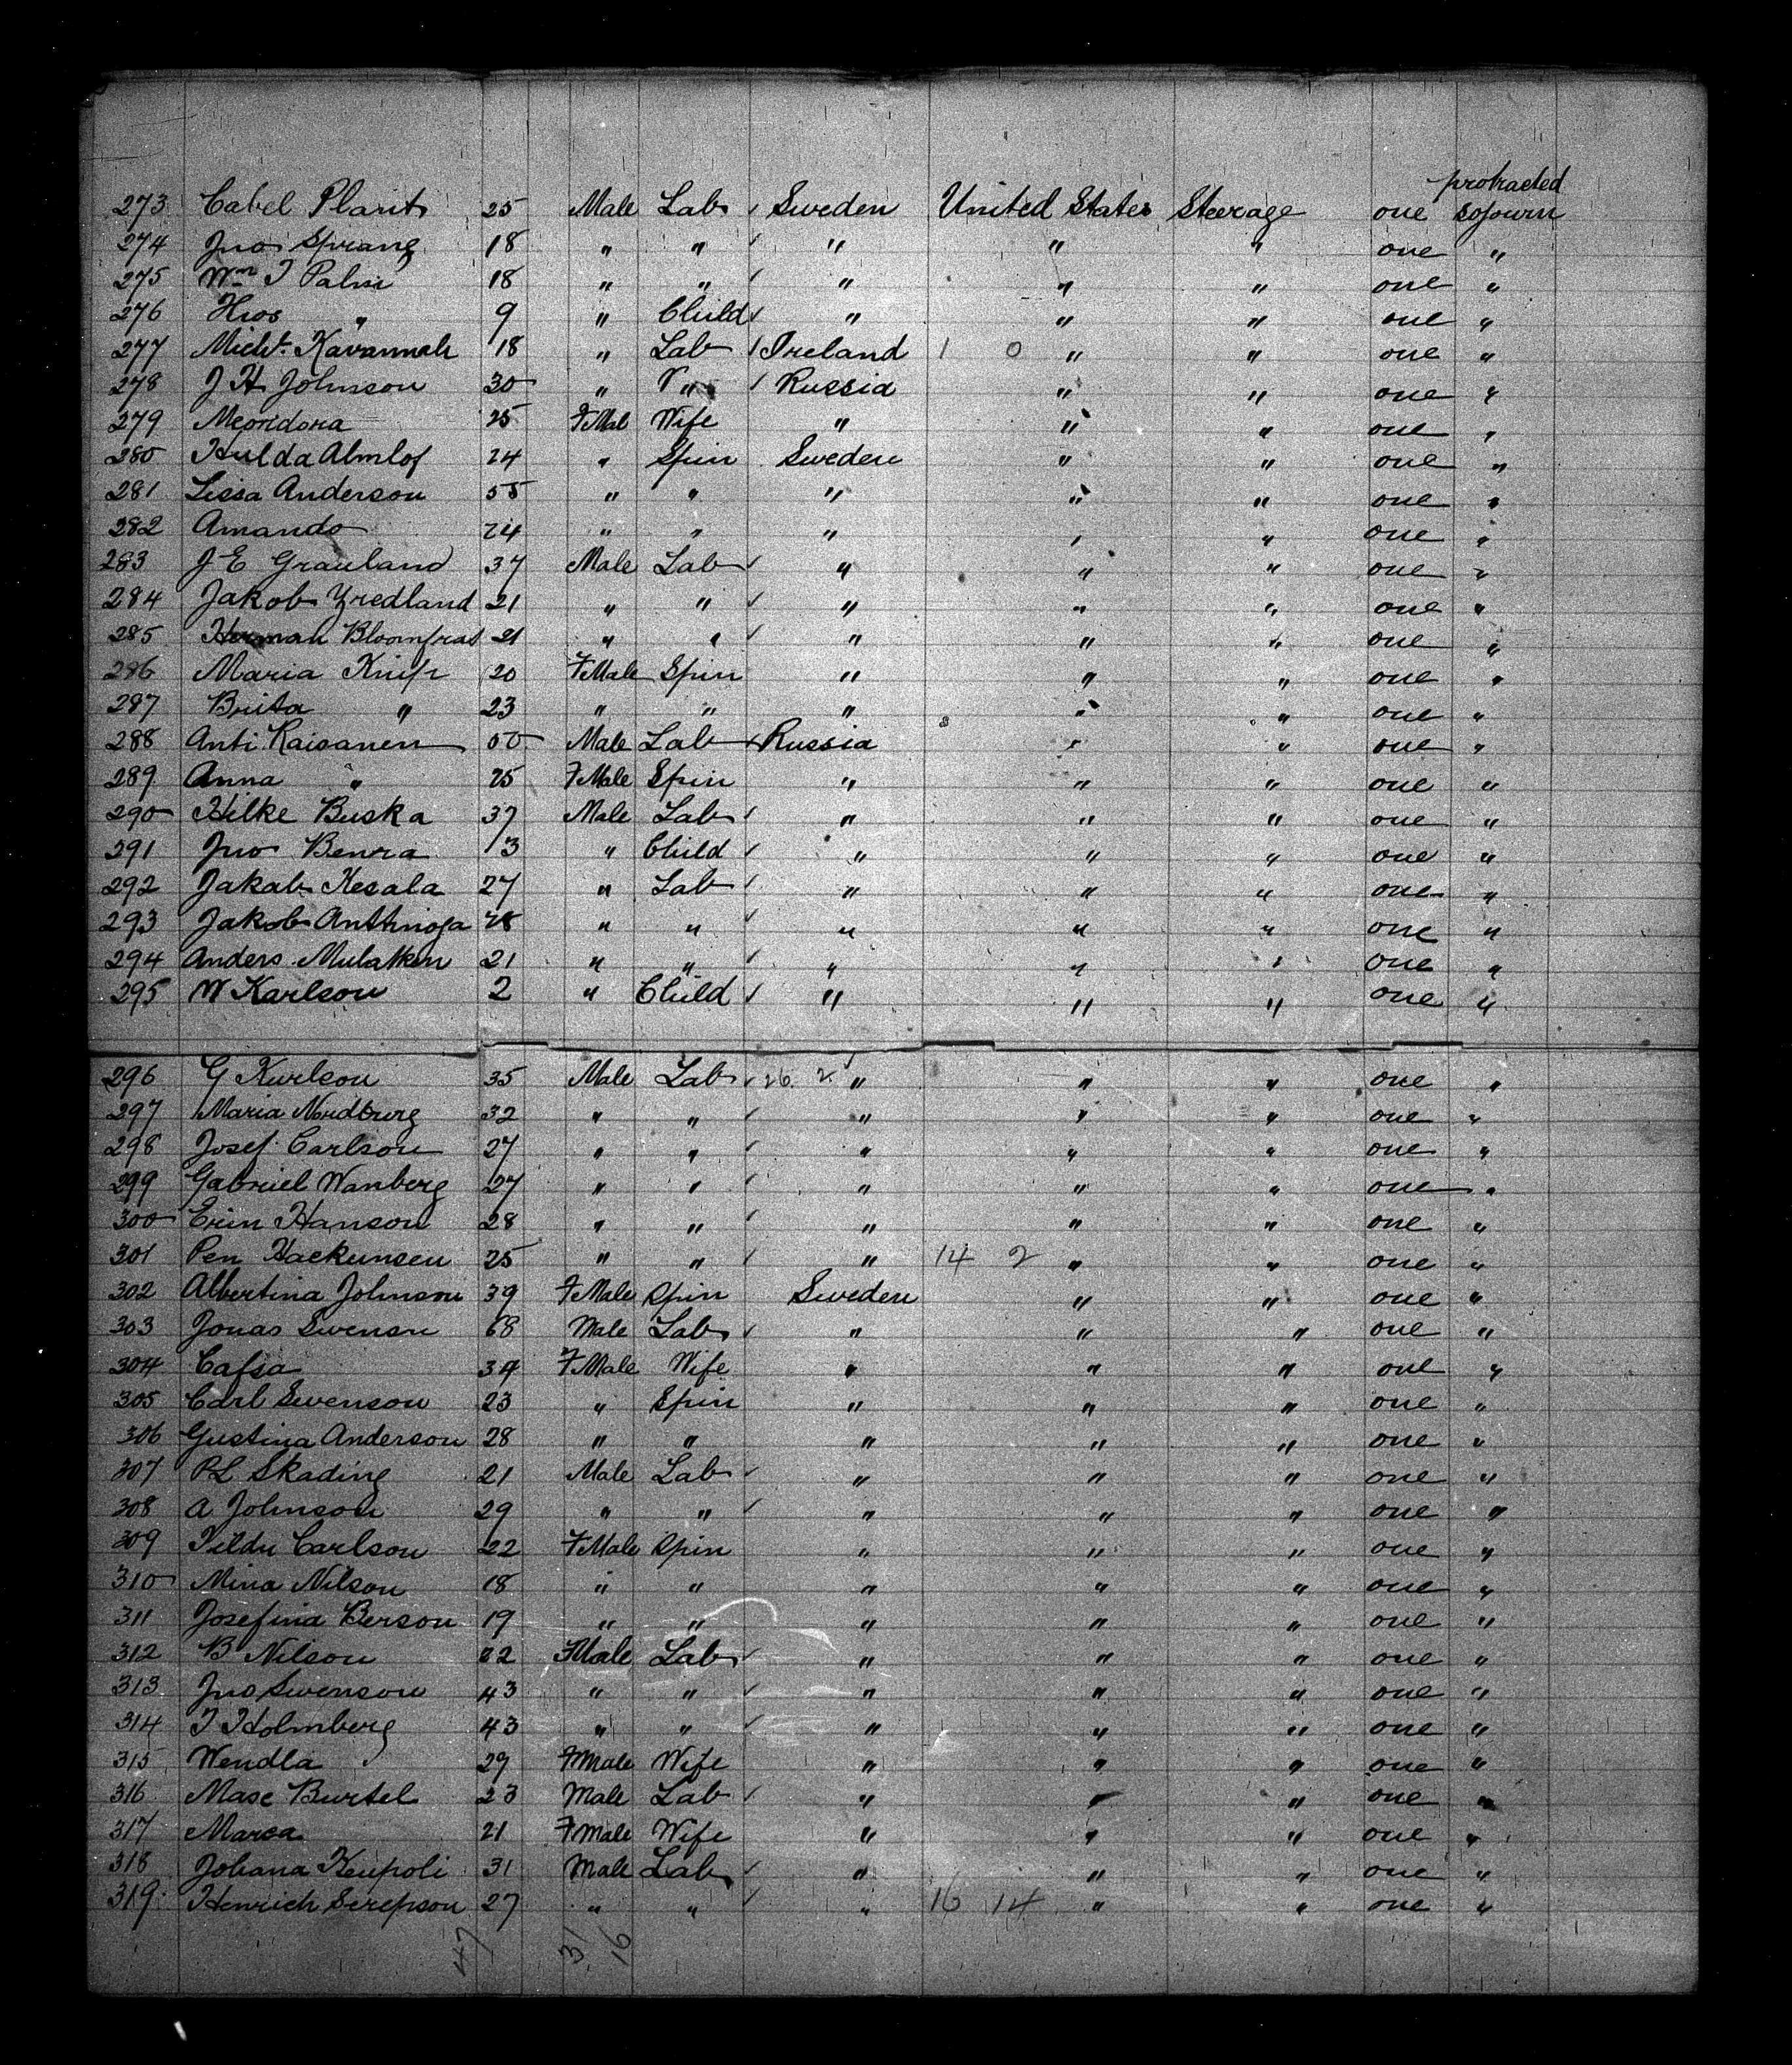 protracted
273 Cabel Plarit 25 Male Lab Sweden United States Steerage one sojourn
274 Jno Sprang 18 " " " " " one "
275 Wm T Palm 18 " " " " " one "
276 " 9 " Child " " " one "
277 Michl. Kavannah 18 " Lab Ireland 1 0 " " one "
278 J H Johnson 30 " " Russia " " one "
279 25 FMal Wife " " " one "
280 Hulda Almlof 24 " Spin Sweden " " one "
281 Lissa Anderson 55 " " " " " one "
282 Amanda 24 " " " " " one "
283 J E Grauland 37 Male Lab " " " one "
284 Jakob 21 " " " " " one "
285 Herman 21 " " " " " one "
286 Maria Knip 20 FMale Spin " " " one "
287 Brita " 23 " " " " " one "
288 Anti Kaisanen Male Lab Russia " " one "
289 Anna " 25 FMale Spin " " " one "
290 Hilke Buska 37 Male Lab " " " one "
291 Jno Benra 13 " Child " " " one "
292 Jakab Kesala 27 " Lab " " " one "
293 Jakob " " " " " one "
294 Anders 21 " " " " " one "
295 W Karlson 2 " Child " " " one "
296 G Karlson 35 Male Lab 26 2 " " " one "
297 Maria Nordburg 32 " " " " " one "
298 Josef Carlson 27 " " " " " one "
299 Gabriel Wanberg 27 " " " " " one "
300 Erin Hanson 28 " " " " " one "
301 Pen Hackunsen 25 " " " 14 2 " " one "
302 Albertina Johnson 39 FMale Spin Sweden " " one "
303 Jonas Swenson 68 Male Lab " " " one "
304 Cafsa 34 FMale Wife " " " one "
305 Carl Swenson 23 " Spin " " " one "
306 Gustina Anderson 28 " " " " " one "
307 PL Skading 21 Male Lab " " " one "
308 A Johnson 29 " " " " " one "
309 Tilda Carlson 22 FMale Spin " " " one "
310 Mina Nilson 18 " " " " " one "
311 Josefina Berson 19 " " " " " one "
312 B Nilson 22 Male Lab " " " one "
313 Jno Swenson 43 " " " " " one "
314 T Holmberg 43 " " " " " one "
315 Wendla 29 FMale Wife " " " one "
316 Mase Burtel 23 Male Lab " " " one "
317 Marsa 21 FMale Wife " " " one "
318 Johana Keupoli 31 Male Lab " " " one "
319 Henrich Serepson 27 " " " 16 14 " " one "
47 31 16